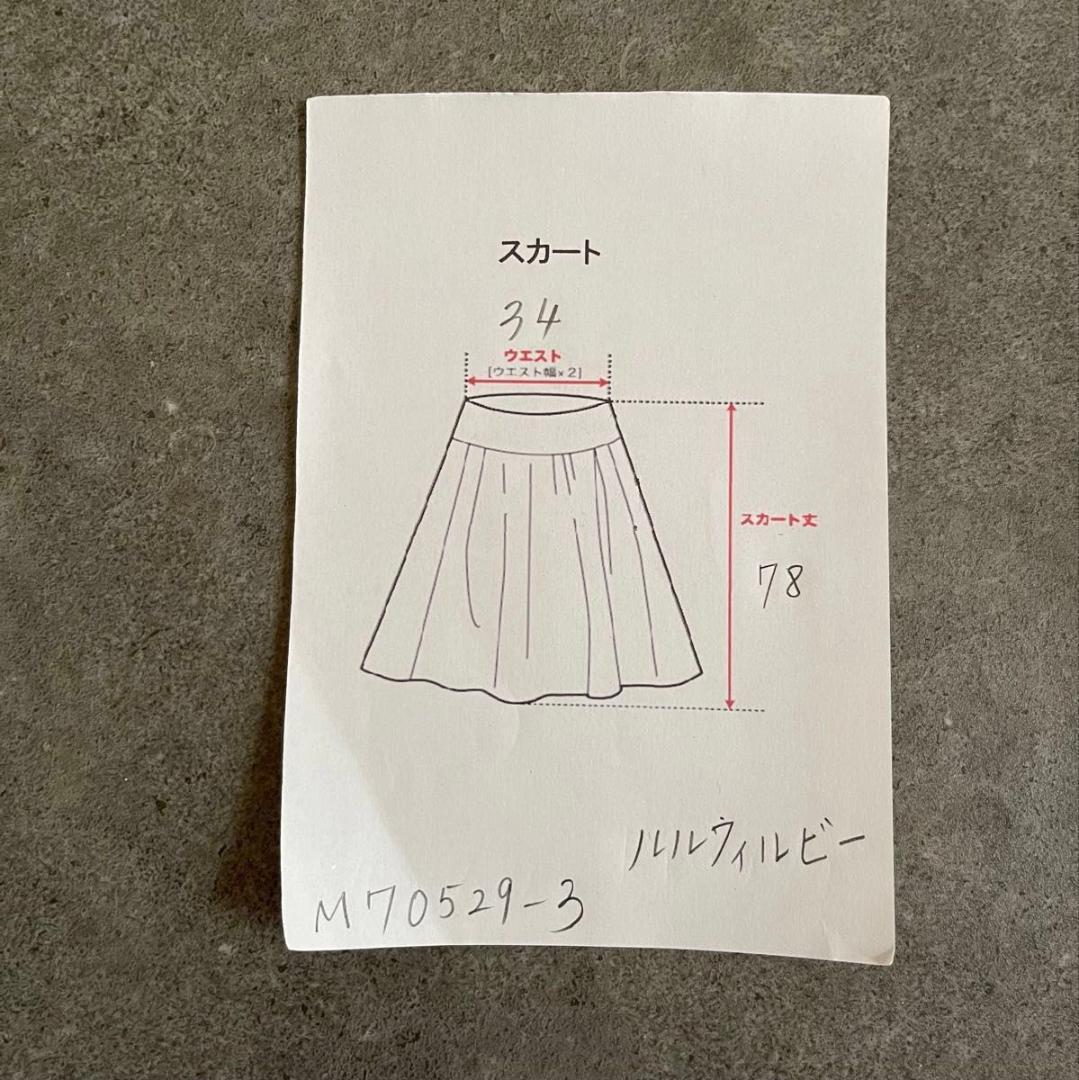 スカート
34
ウエスト
[ウエスト幅×2]
スカート丈
78
ルルウィルビー
M70529-3